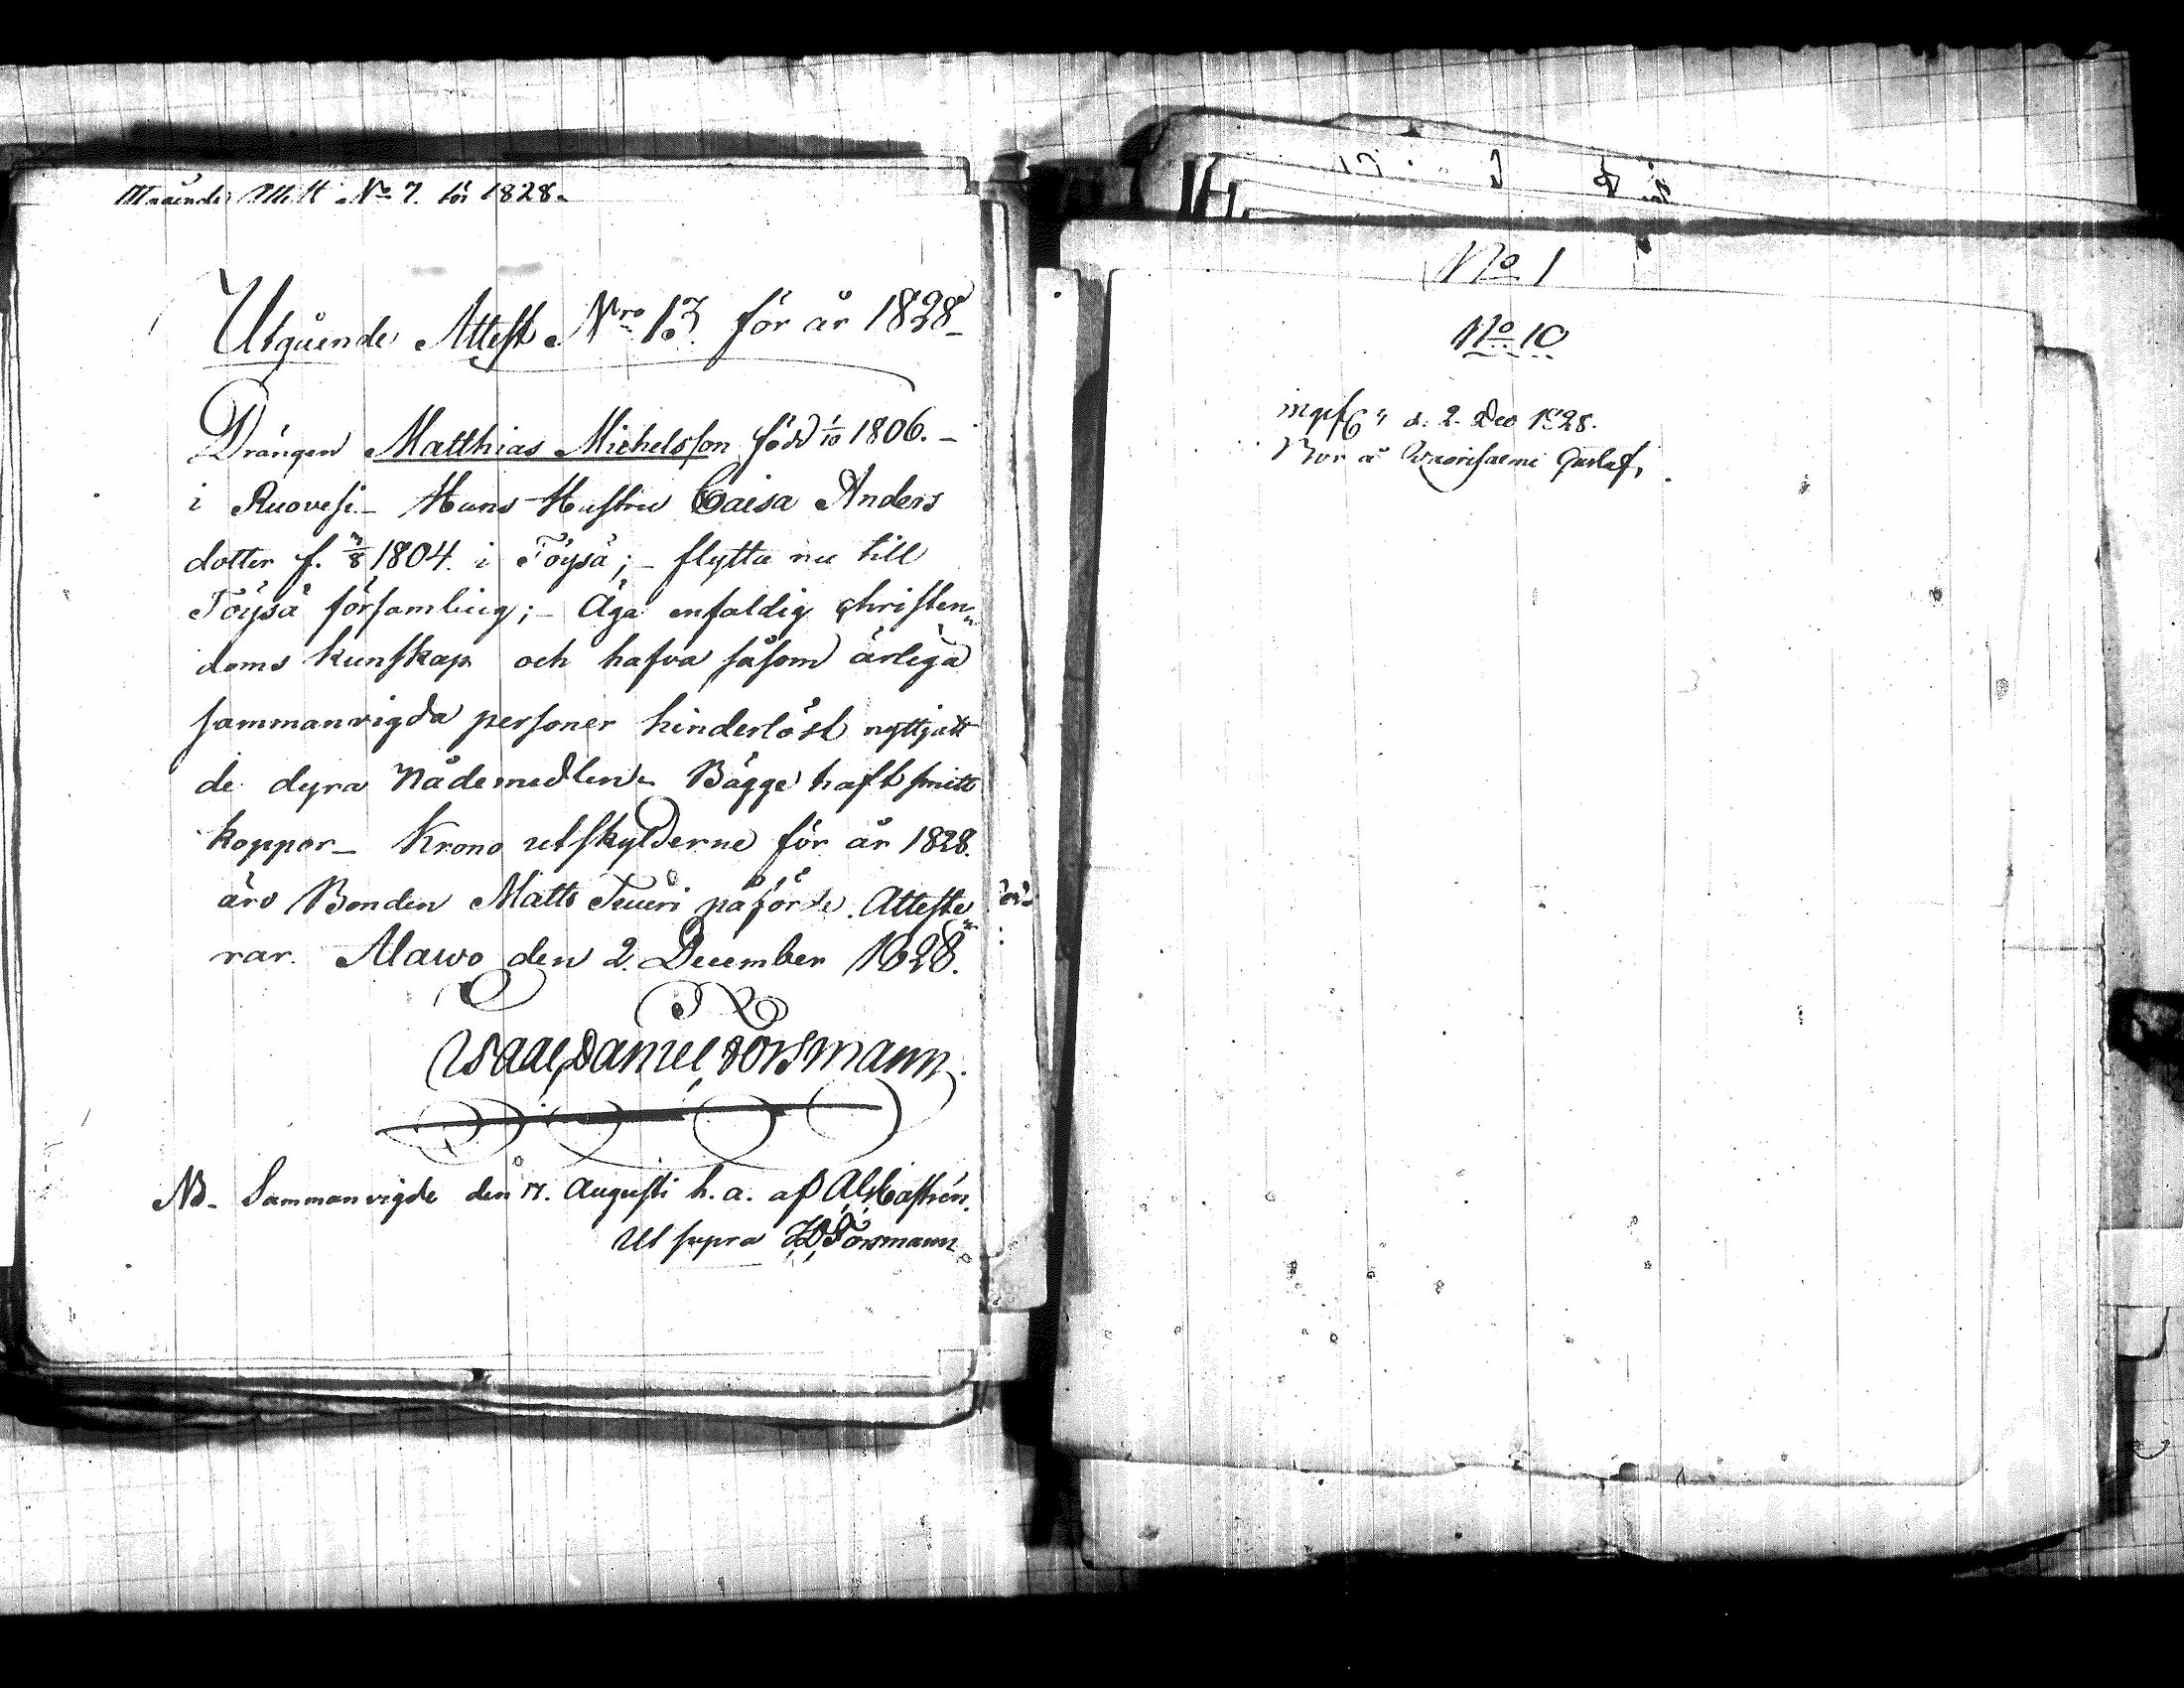 Attest No 7. för 1828.
Utgående Attest Nro 13. för år 1828
Drängen Matthias Michelsson född 1/10 1806. –
i Ruovesi – Hans Hustru Caisa Anders
dotter f. 3/8 1804. i Töysä; – flytta nu till
Töysä församling; – Äga enfaldig christen„
doms kunskap och hafva såsom ärliga
sammanvigda personer hinderlöst nyttjatt
de dyra Nådemedlen. Bägge haft smitt
koppor – Krono utskylderne för år 1828.
äro Bonden Matts Teuri påförde. Atteste„
rar. Alawo den 2. December 1828.
Isaac Daniel Forsmann.
NB. Sammanvigde den 17. Augusti h. a. af Castrén.
Ut supra ID Forsmann
No 1
No 10
d. 2. Dec 1828.